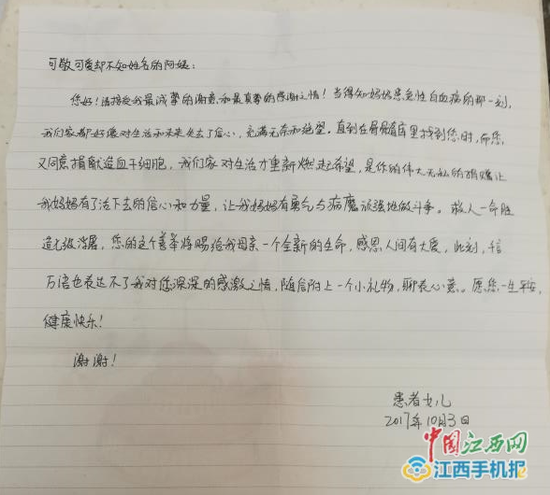 可敬可爱却不知姓名的阿姨：
您好！请接受我最诚挚的谢意和最真挚的感谢之情！当得知妈妈患急性白血病的那一刻，
我们家都好像对生活和未来失去了信心，充满无奈和绝望。直到在骨髓库里找到您时，而您
又同意捐献造血干细胞，我们家对生活才重新燃起希望，是您的伟大无私的捐赠让
我妈妈有了活下去的信心和力量，让我妈妈有勇气与病魔顽强地做斗争。救人一命胜
造七级浮屠，您的这个善举将赐给我母亲一个全新的生命，感恩人间有大爱，此刻，千言
万语也表达不了我对您深深的感激之情，随信附上一个小礼物，聊表心意。愿您一生平安，
健康快乐！
谢谢！
患者女儿
2017年10月3日
中国江西网
江西手机报